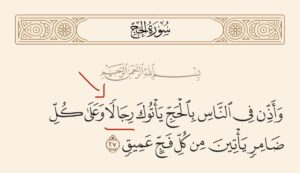 سُورَةُ الحَجِّ
بِسْمِ اللَّهِ الرَّحْمَٰنِ الرَّحِيمِ
وَأَذِّن فِي النَّاسِ بِالْحَجِّ يَأْتُوكَ رِجَالًا وَعَلَىٰ كُلِّ
ضَامِرٍ يَأْتِينَ مِن كُلِّ فَجٍّ عَمِيقٍ ٢٧